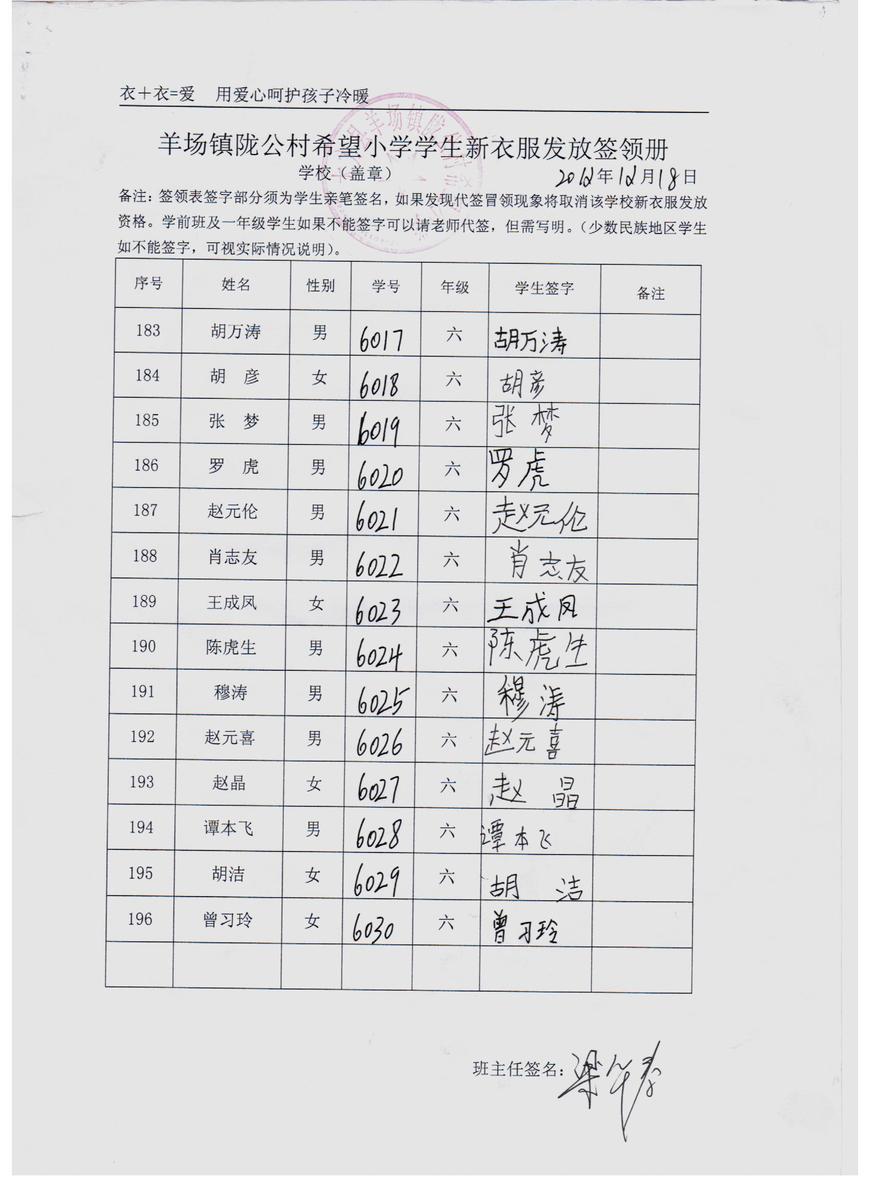 衣+衣=爱 用爱心呵护孩子冷暖
羊场镇陇公村希望小学学生新衣服发放签领册
学校（盖章） 2012年12月18日
备注：签领表签字部分须为学生亲笔签名，如果发现代签冒领现象将取消该学校新衣服发放
资格。学前班及一年级学生如果不能签字可以请老师代签，但需写明。（少数民族地区学生
如不能签字，可视实际情况说明）。
序号 姓名 性别 学号 年级 学生签字 备注
183 胡万涛 男 6017 六 胡万涛
184 胡 彦 女 6018 六 胡彦
185 张 梦 男 6019 六 张 梦
186 罗 虎 男 6020 六 罗虎
187 赵元伦 男 6021 六 赵元伦
188 肖志友 男 6022 六 肖志友
189 王成凤 女 6023 六 王成凤
190 陈虎生 男 6024 六 陈虎生
191 穆涛 男 6025 六 穆涛
192 赵元喜 男 6026 六 赵元喜
193 赵晶 女 6027 六 赵 晶
194 谭本飞 男 6028 六 谭本飞
195 胡洁 女 6029 六 胡 洁
196 曾习玲 女 6030 六 曾习玲
班主任签名：